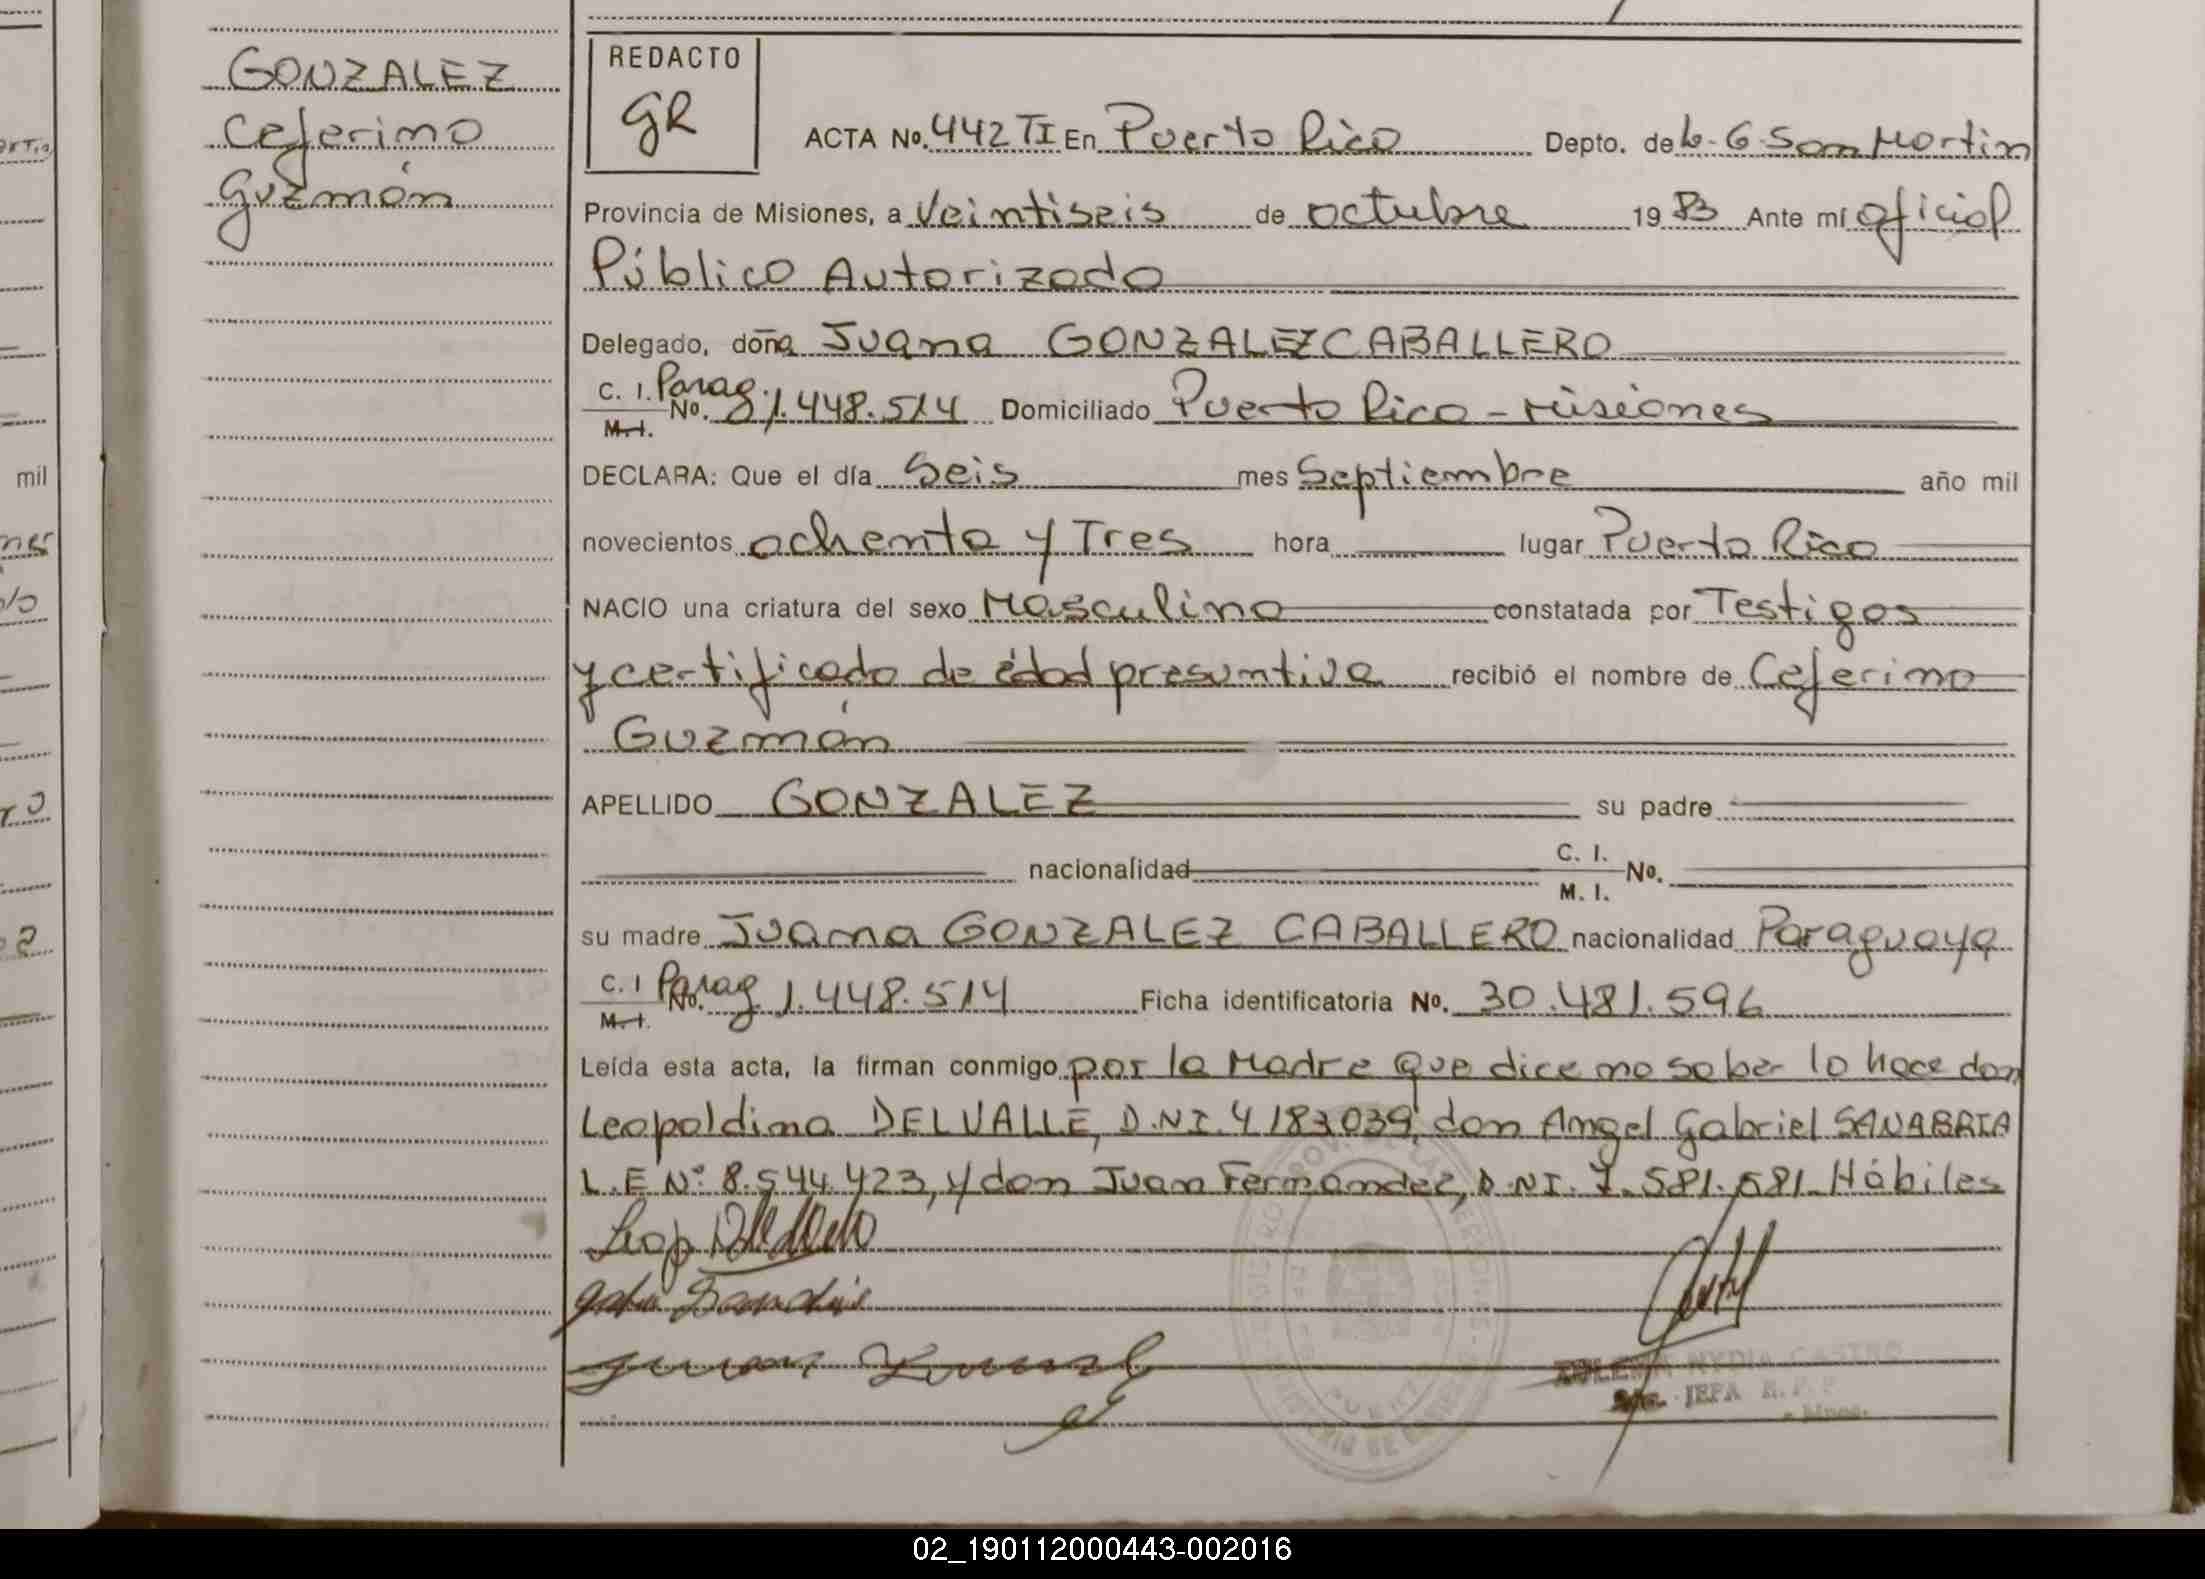 GONZALEZ
Ceferino
Guzmán
REDACTO
GR
ACTA No. 442 TI En Puerto Rico Depto. de L. G. San Martin
Provincia de Misiones, a Veintiseis de octubre 19 83 Ante mí oficial
Público Autorizado
Delegado, doña Juana GONZALEZ CABALLERO
C. I. Parag.
M. I. No. 1.448.514 Domiciliado Puerto Rico - Misiones
DECLARA: Que el día Seis mes Septiembre año mil
novecientos ochenta y Tres hora lugar Puerto Rico
NACIO una criatura del sexo Masculino constatada por Testigos
y certificado de edad presuntiva recibió el nombre de Ceferino
Guzmán
APELLIDO GONZALEZ su padre
nacionalidad C. I. M. I. No.
su madre Juana GONZALEZ CABALLERO nacionalidad Paraguaya
C. I Parag
M. I. No. 1.448.514 Ficha identificatoria No. 30.481.596
Leída esta acta, la firman conmigo por la Madre que dice no saber lo hace don
Leopoldina DELVALLE, D.N.I. 4183039, don Angel Gabriel SANABRIA
L.E Nº 8.544.423, y don Juan Fernandez, D.NI. 7.581.581. Hábiles
NYDIA CASTRO
JEFA R.P.P
mil
02_190112000443-002016